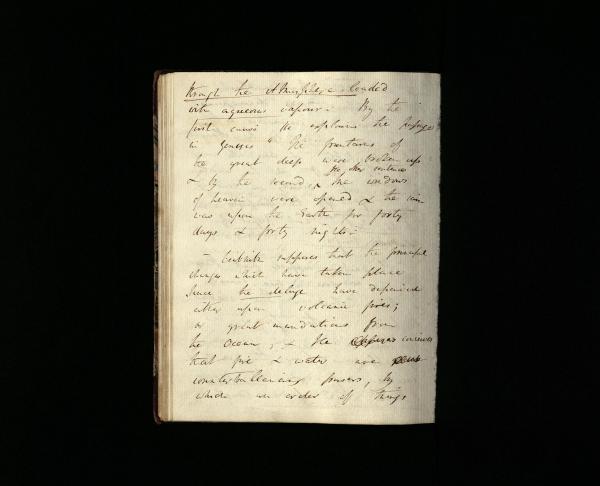 through the Atmosphere loaded
with aqueous vapour - By the
first cause he explains the passage
in Genesis "the fountains of
the great deep were broken up
& by the second, the other sentence
& the windows
of heaven were opened & the rain
was upon the Earth for forty
days & forty nights -
- supposes that the principal
changes which have taken place
since the deluge have depended
either upon volcanic fires;
or great inundations from
the Ocean, & he conceives
that fire & water are
counterballancing powers, by
which an order of things